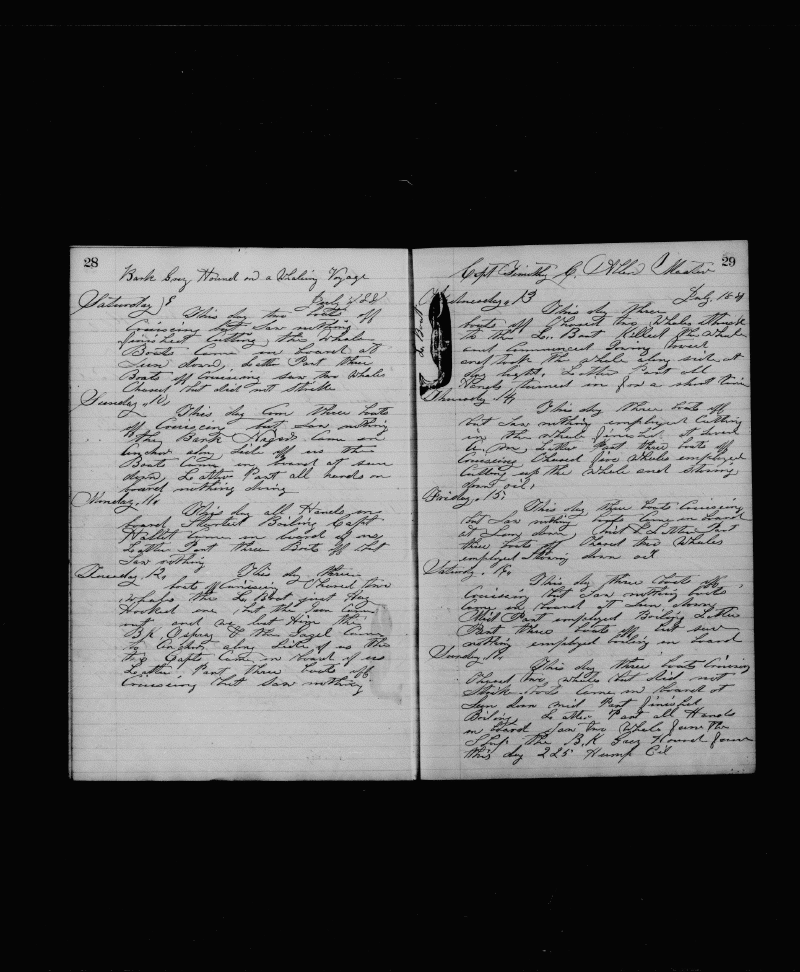 28
Bark Grey Hound on a Whaling Voyage
Saturday 8 July 1882
This day two boats off
Cruiseing but Saw nothing
finished Cutting the whale
Boats Came on board at
Sun down Latter Part three
Boats off Cruiseing Saw two whales
Chased but did not Strike
Sunday 10
This day Com three boats
off Cruiseing but Saw nothing
the Bark Came an
anchor along Side off us the
Boats Came on board at Sun
down Latter Part all hands on
board nothing doing
Monday 11
This day all Hands on
board Started Boiling Capt
Hallet Came on board of us
Latter Part three Boats off but
Saw nothing
Tuesday 12 This day three
boats off Cruiseing Chased five
whales the L. Boat just
Hooked one but the Iron Came
out and we lost Him the
B.K. Osprey & the Came
to Anchor along Side of us the
two Capts Came on board of us
Latter Part three boats off
Cruiseing but Saw nothing
29
Capt Timothy C. Allen Master
Wednesday 13 July
This day three
boats off Chased two Whales Struck
to the L. Boat Killed the Whale
and Commenced towing
and took the whale along side at
day light Latter Part all
Hands turned in for a short time
Thursday 14
This day three boats off
but Saw nothing employed Cutting
in the whale finished at Seven
A.m. Latter Part three boats off
Cruiseing Chased five whales employed
Cutting up the Whale and Stowing
down oil
Friday 15
This day three boats Cruiseing
but Saw nothing boats Came on board
at Sun down Mid & Latter Part
three boats off Chased two Whales
employed Stowing down oil
Saturday
This day three boats off
Cruiseing but Saw nothing boats
Came on board at Sun down
Mid Part employed Boiling Latter
Part three boats off but saw
nothing employed boiling on board
Sunday
This day three boats Cruiseing
Chased two whales but did not
Strike boats Came on board at
Sun down mid Part finished
Boiling Latter Part all Hands
on board Saw two Whales from the
Ship the B.K. Grey Hound from
this day 225 Hump Oil